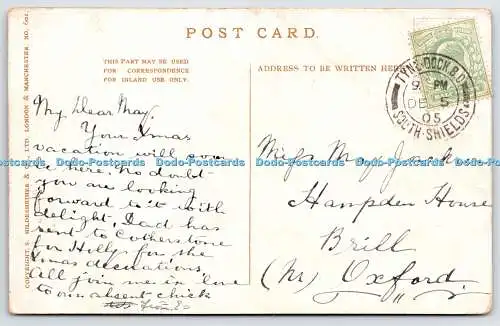 POST CARD.
THIS PART MAY BE USED
FOR CORRESPONDENCE
FOR INLAND USE ONLY.
ADDRESS TO BE WRITTEN HERE
TYNE DOCK B.O.
9 PM
DE 5
05
SOUTH SHIELDS
My Dear May.
Your Xmas
vacation will soon
be here. No doubt
you are looking
forward to it with
delight, Dad has
sent to Cotherstone
for Holly for the
Xmas decorations,
All join me in love
to our absent chick
Miss May Jack
Hampden House
Brill
(Nr) Oxford.
COPYRIGHT S. HILDESHEIMER & CO LTD LONDON & MANCHESTER NO.
Dado Postcards